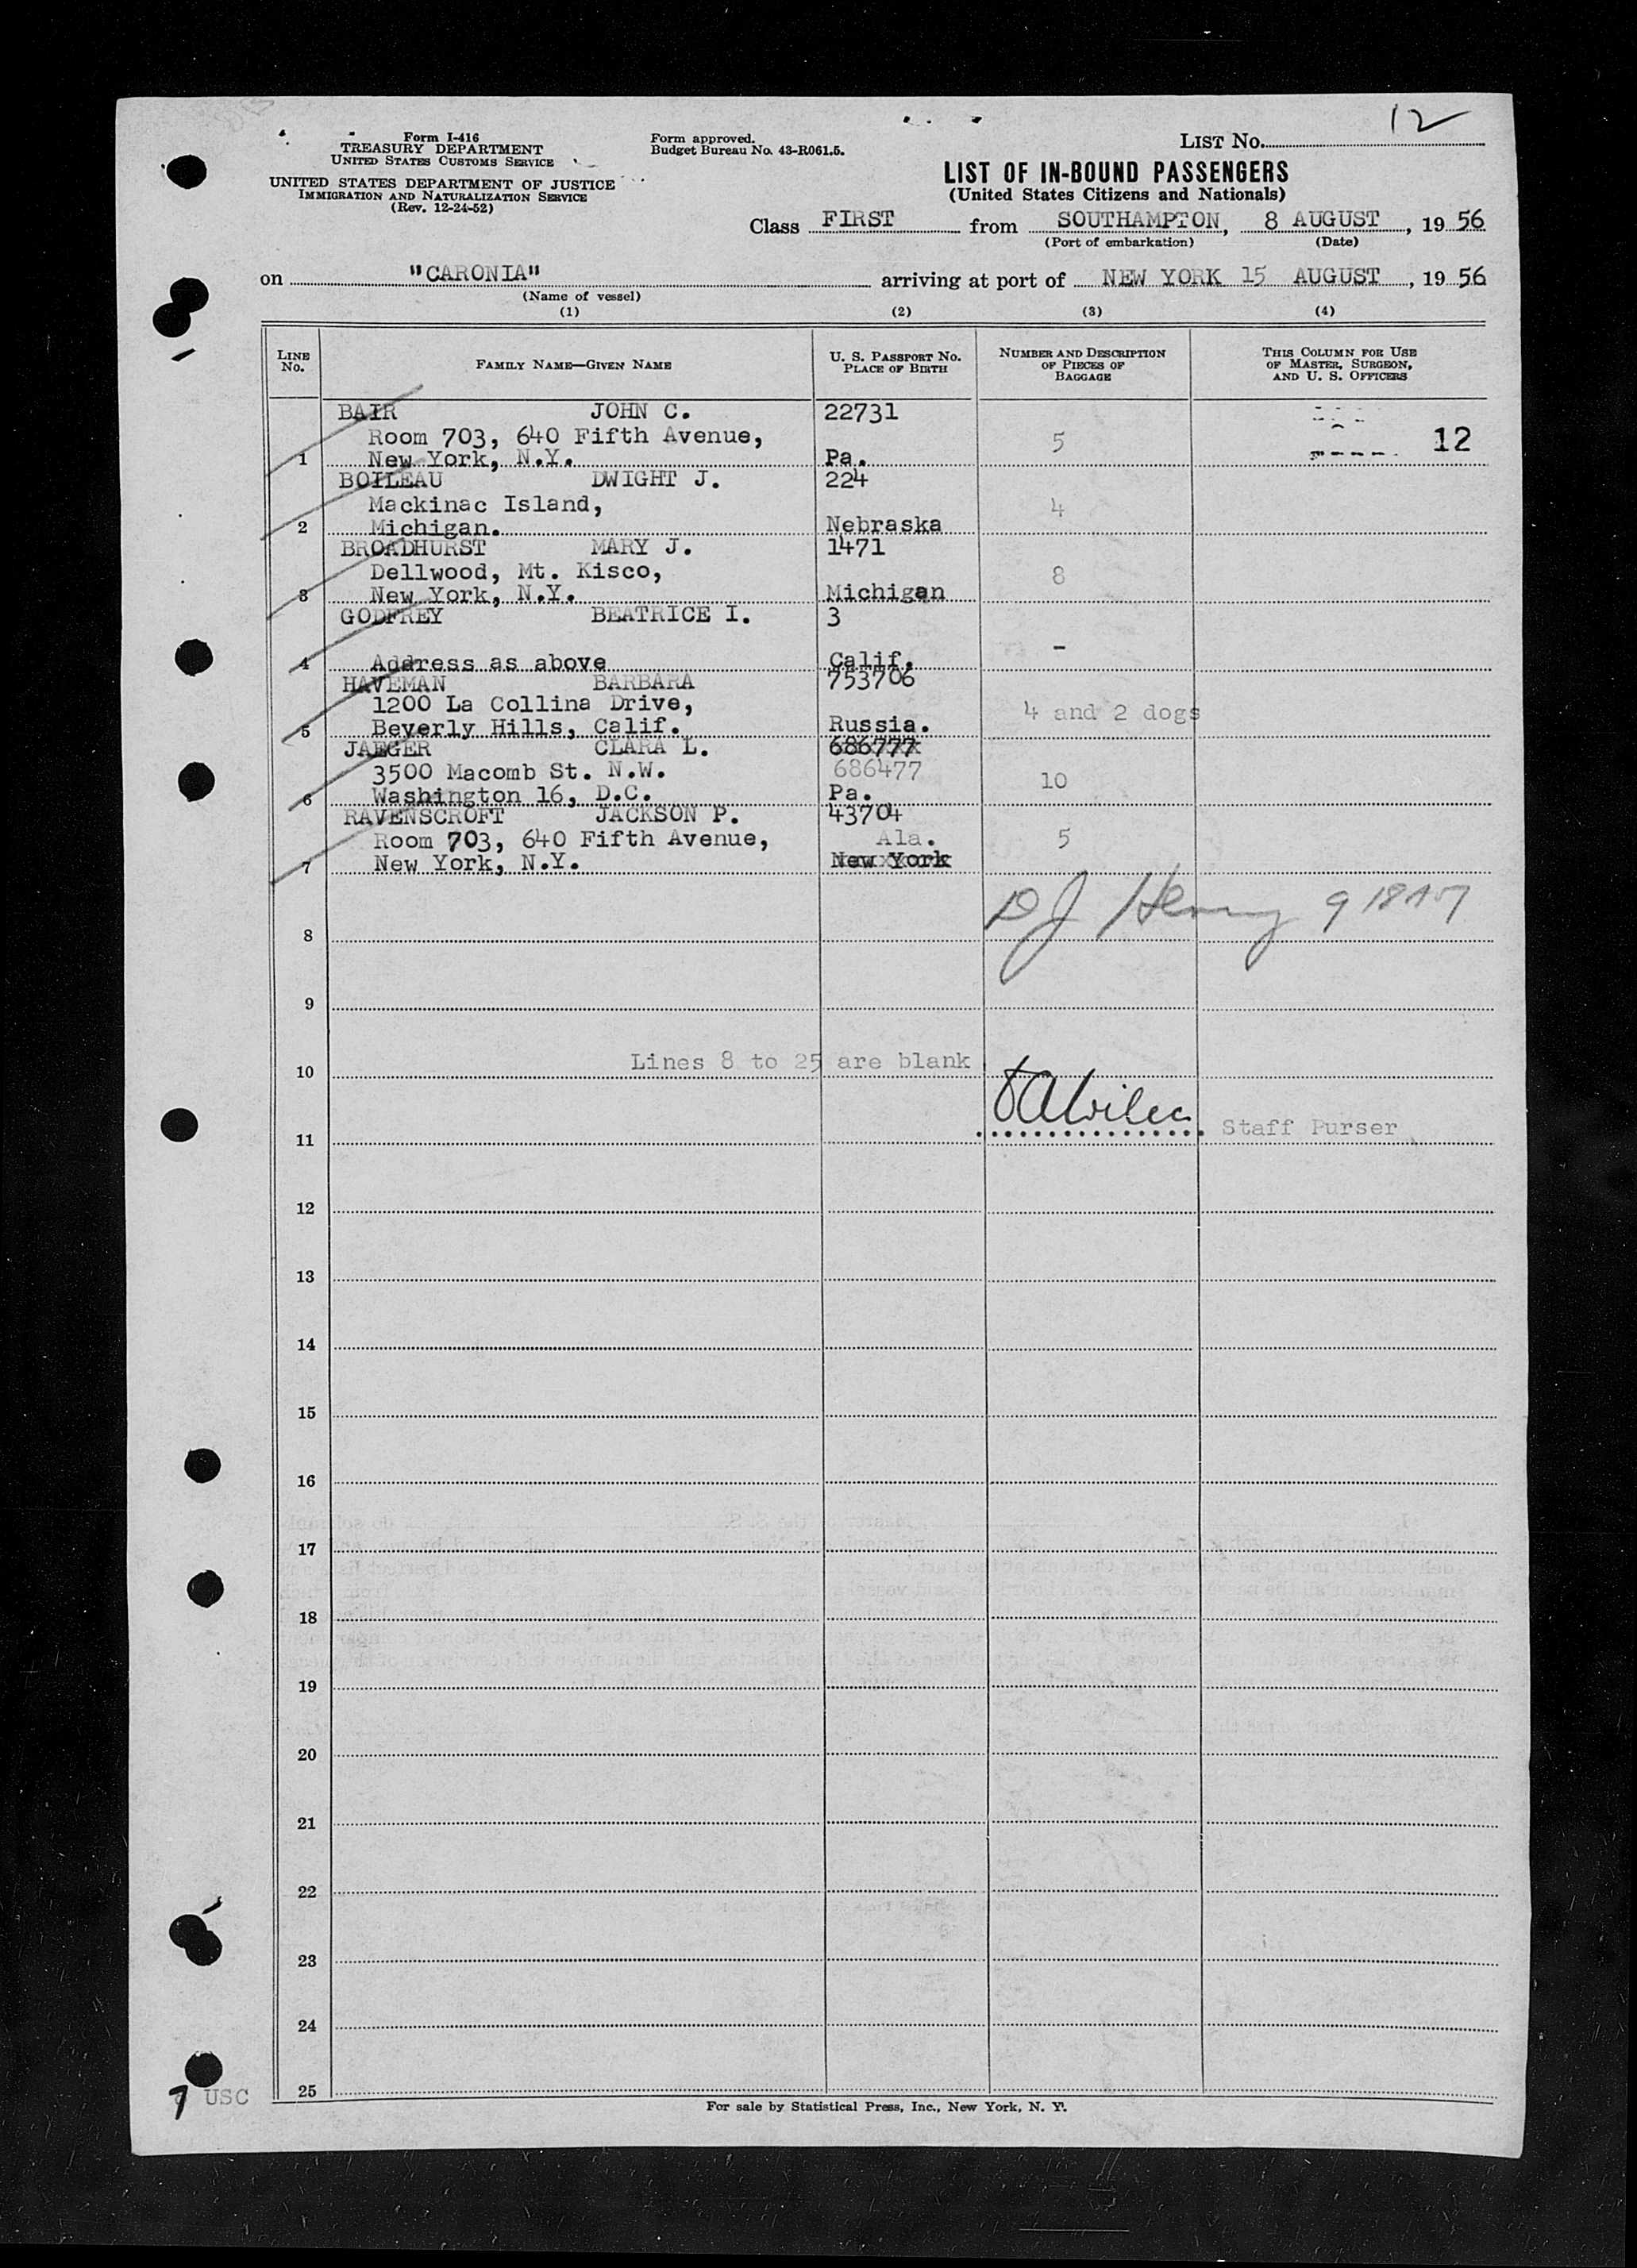 12
Form I-416
TREASURY DEPARTMENT
UNITED STATES CUSTOMS SERVICE
UNITED STATES DEPARTMENT OF JUSTICE
IMMIGRATION AND NATURALIZATION SERVICE
(Rev. 12-24-52)
Form approved.
Budget Bureau No. 43-R061.5.
LIST NO.
LIST OF IN-BOUND PASSENGERS
(United States Citizens and Nationals)
Class FIRST from SOUTHAMPTON, 8 AUGUST, 1956
(Port of embarkation) (Date)
on "CARONIA" arriving at port of NEW YORK 15 AUGUST, 1956
(Name of vessel)
(1) (2) (3) (4)
LINE NO. FAMILY NAME—GIVEN NAME U. S. PASSPORT NO. PLACE OF BIRTH NUMBER AND DESCRIPTION OF PIECES OF BAGGAGE THIS COLUMN FOR USE OF MASTER, SURGEON, AND U. S. OFFICERS
BAIR JOHN C. 22731
Room 703, 640 Fifth Avenue, 5 12
1 New York, N.Y. Pa.
BOILEAU DWIGHT J. 224
Mackinac Island, 4
2 Michigan. Nebraska
BROADHURST MARY J. 1471
Dellwood, Mt. Kisco, 8
3 New York, N.Y. Michigan
GODFREY BEATRICE I. 3
-
4 Address as above Calif.
HAVEMAN BARBARA 753706
1200 La Collina Drive, 4 and 2 dogs
5 Beverly Hills, Calif. Russia.
JAEGER CLARA L. 686777
3500 Macomb St. N.W. 686477 10
6 Washington 16, D.C. Pa.
RAVENSCROFT JACKSON P. 43704
Room 703, 640 Fifth Avenue, Ala. 5
7 New York, N.Y. New York
Henry
8
9
Lines 8 to 25 are blank
10
11 Staff Purser
12
13
14
15
16
17
18
19
20
21
22
23
24
25
7 USC
For sale by Statistical Press, Inc., New York, N. Y.